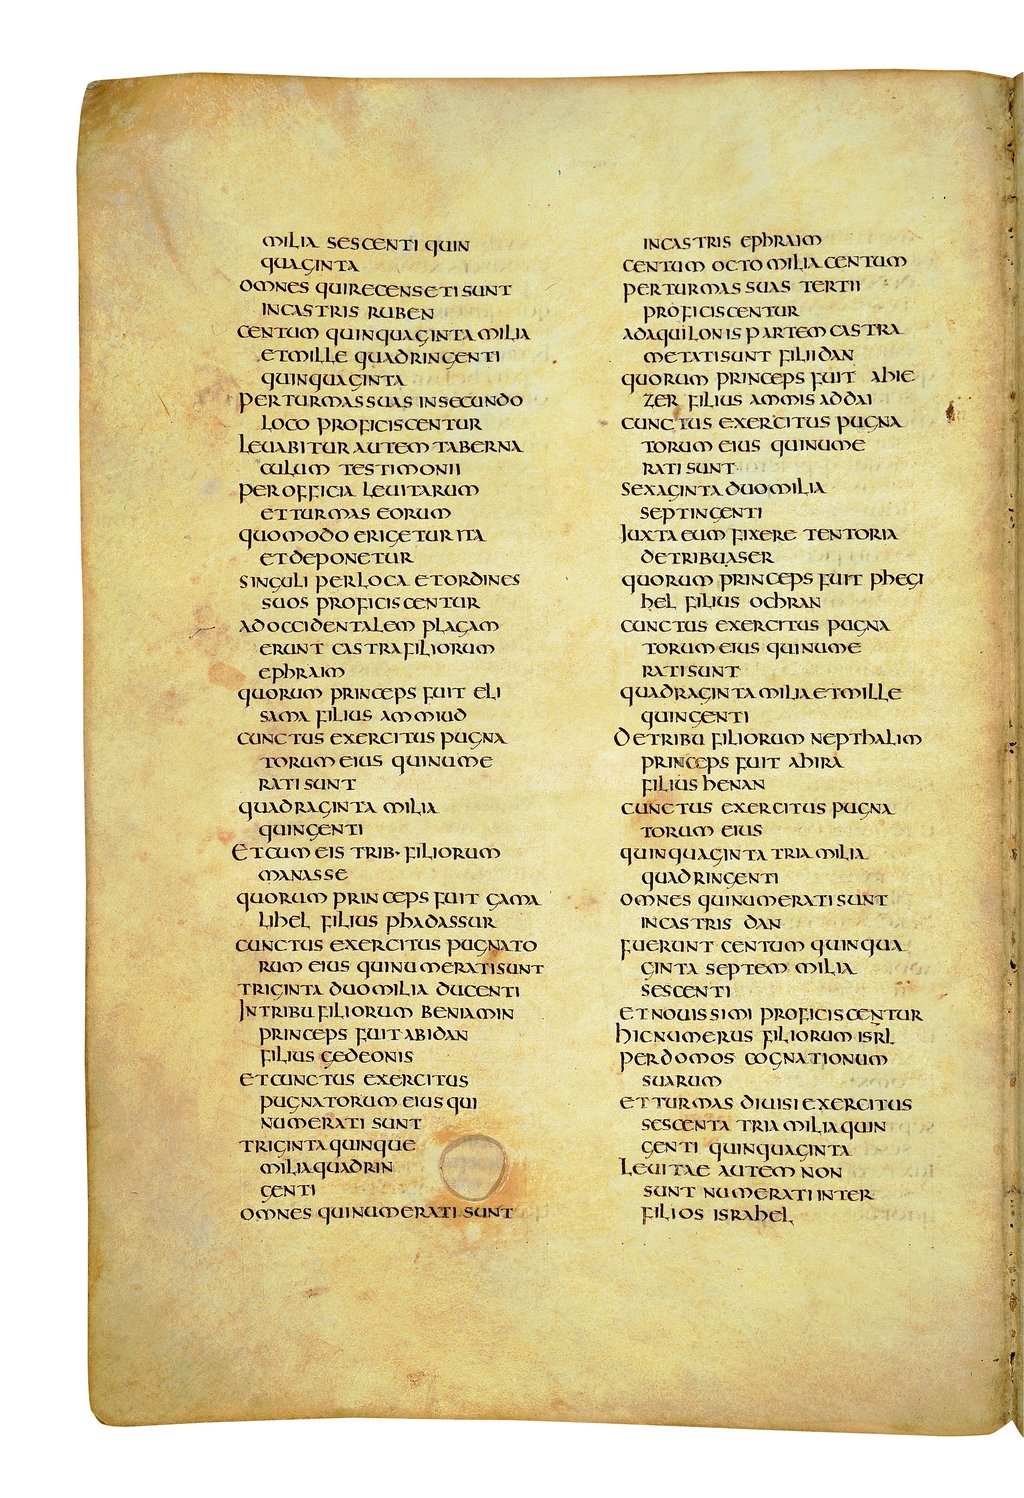 milia sescenti quin
quaginta
omnes qui recenseti sunt
in castris ruben
centum quinquaginta milia
et mille quadringenti
quinquaginta
per turmas suas in secundo
loco proficiscentur
Leuabitur autem taberna
culum testimonii
per officia leuitarum
et turmas eorum
quomodo erigetur ita
et deponetur
singuli per loca et ordines
suos proficiscentur
ad occidentalem plagam
erunt castra filiorum
ephraim
quorum princeps fuit eli
sama filius ammiud
cunctus exercitus pugna
torum eius qui nume
rati sunt
quadraginta milia
quingenti
Et cum eis trib· filiorum
manasse
quorum princeps fuit gama
lihel filius phadassur
cunctus exercitus pugnato
rum eius qui numerati sunt
triginta duo milia ducenti
In tribu filiorum beniamin
princeps fuit abidan
filius gedeonis
et cunctus exercitus
pugnatorum eius qui
numerati sunt
triginta quinque
milia quadrin
genti
omnes qui numerati sunt
in castris ephraim
centum octo milia centum
per turmas suas tertii
proficiscentur
ad aquilonis partem castra
metati sunt filii dan
quorum princeps fuit ahie
zer filius ammisaddai
cunctus exercitus pugna
torum eius qui nume
rati sunt
sexaginta duo milia
septingenti
Iuxta eum fixere tentoria
de tribu aser
quorum princeps fuit phegi
hel filius ochran
cunctus exercitus pugna
torum eius qui nume
rati sunt
quadraginta milia et mille
quingenti
De tribu filiorum nepthalim
princeps fuit ahira
filius henan
cunctus exercitus pugna
torum eius
quinquaginta tria milia
quadringenti
omnes qui numerati sunt
in castris dan
fuerunt centum quinqua
ginta septem milia
sescenti
et nouissimi proficiscentur
hic numerus filiorum isrl
per domos cognationum
suarum
et turmas diuisi exercitus
sescenta tria milia quin
genti quinquaginta
Leuitae autem non
sunt numerati inter
filios israhel